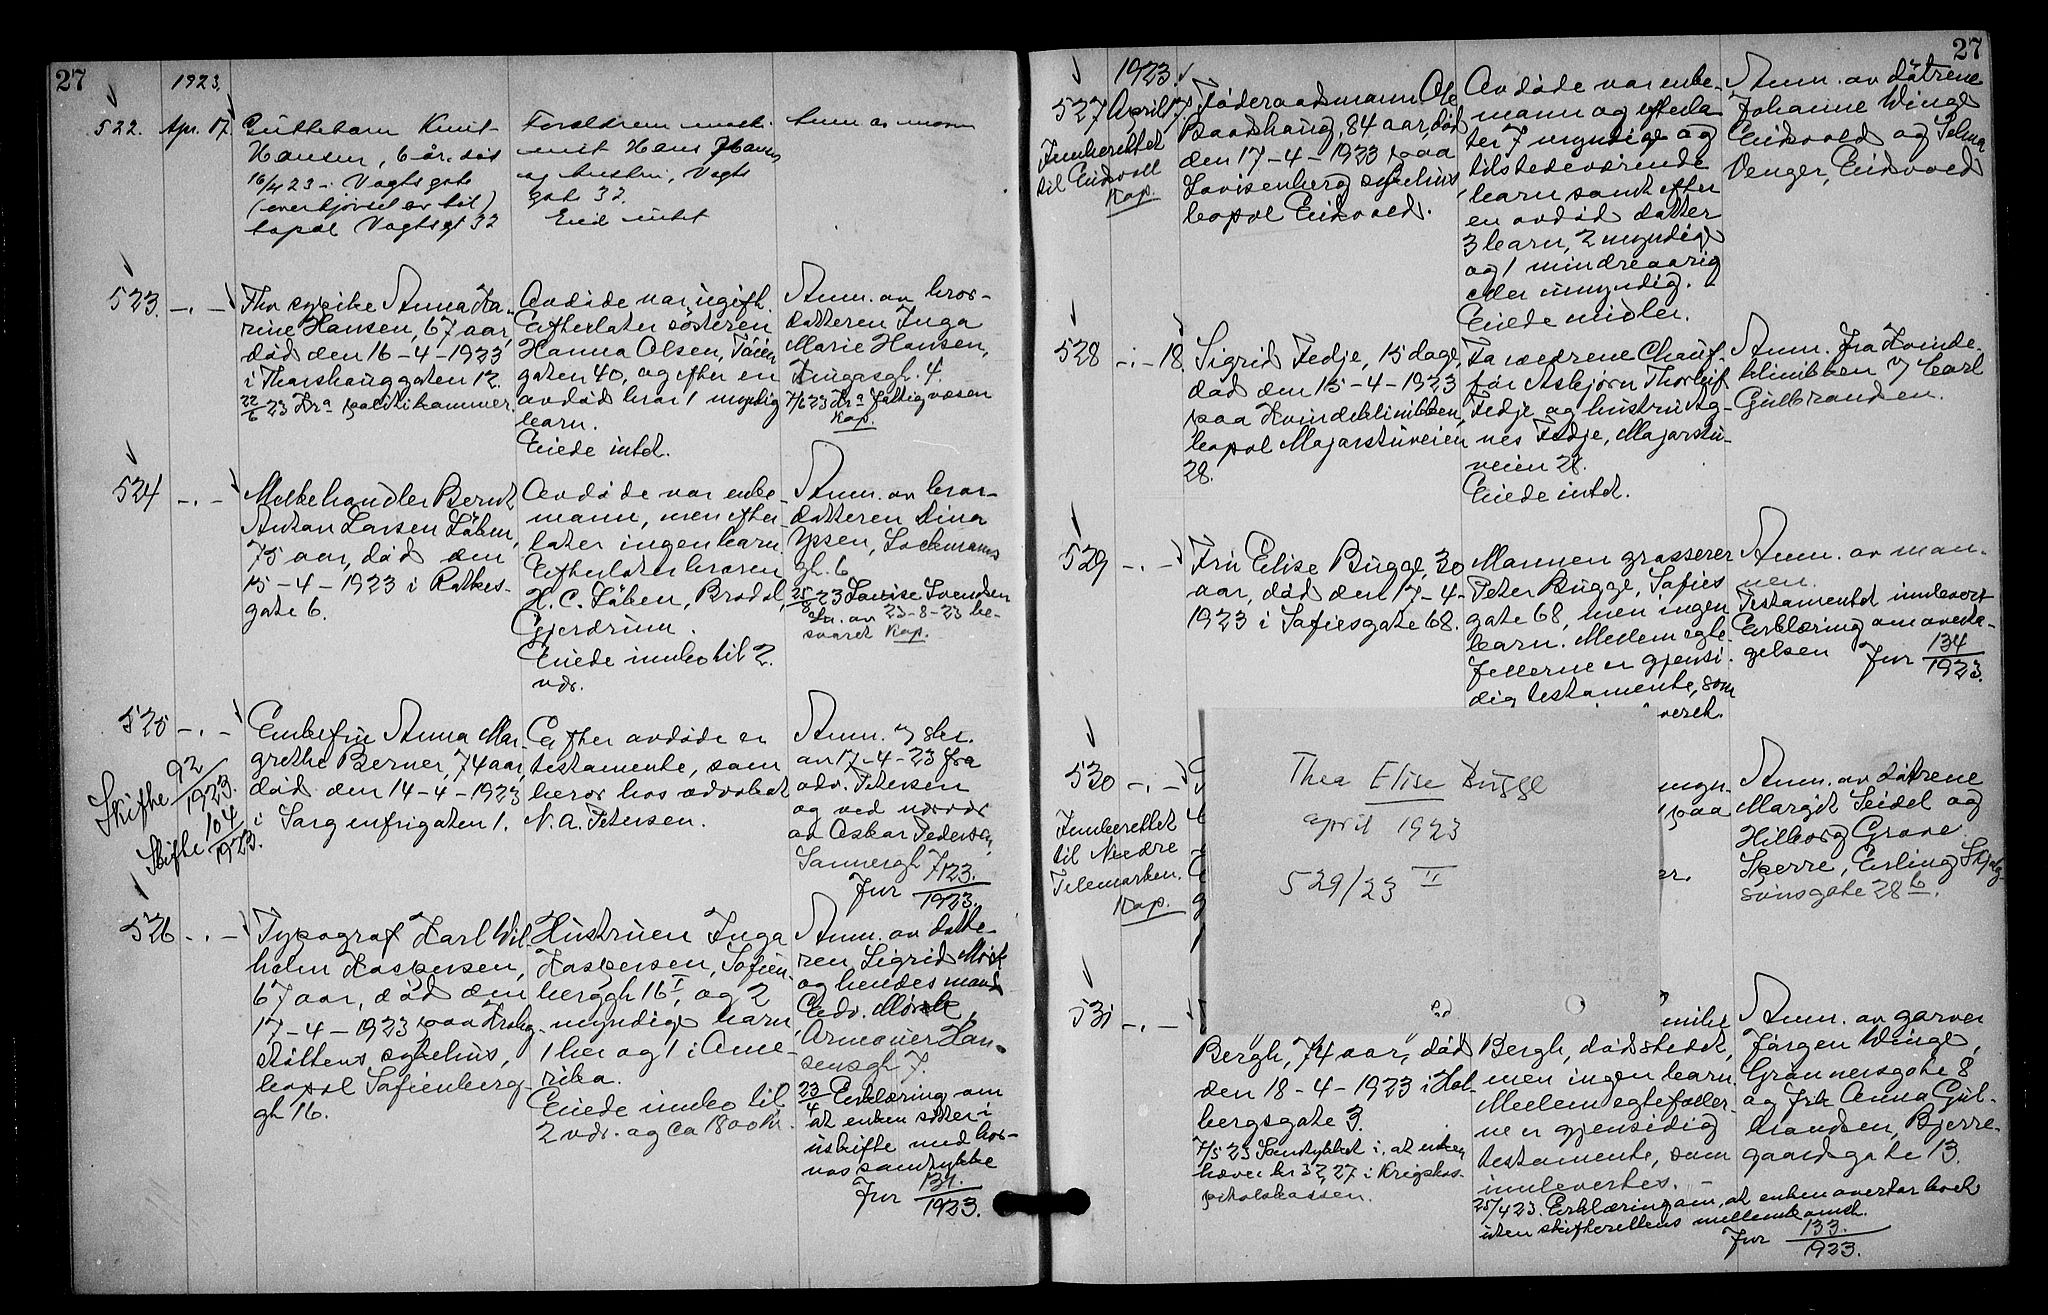 27
1923.
522. Apr. 17.
Guttebarn Knut
Hansen, 6 år, død
16/4 23 i Vogts gate
(overkjørt av bil)
bopæl Vogtsgt 32
Forældrene
Hans Hansen
og hustru, Vogts
gate 32.
Eied intet
523. -.-
Frk syerske Anna Ka-
rine Hansen, 67 aar,
død den 16-4-1923
i Thorshauggaten 12.
22/6 23 Kra politikammer.
Avdøde var ugift.
Efterlater søsteren
Hanna Olsen, Tøien
gaten 40, og efter en
avdød bror 1 myndig
barn.
Eiede intet.
Anm. av bror-
datteren Inga
Marie Hansen,
Krugersgt. 4.
7/6 23 Kra Fattigvæsen
Kop.
524 -.-
Melkehandler Bernt
Anton Larsen Løben,
75 aar, død den
15-4-1923 i Ratkes-
gate 6.
Avdøde var enke-
mann, men efter-
later ingen barn.
Efterlater broren
H. C. Løben, Brødal,
Gjerdrum.
Eiede innbo til 2.
vdr.
Anm. av bror-
datteren Dina
Ypsen, Lochmanns
gt. 6
25/8 23 Louise Svendsen
skr. av 23-8-23 be-
svaret Kop.
525 -.-
Skifte 92/1923.
Skifte 104/1923.
Enkefru Anna Mar-
grethe Berner, 74 aar,
død den 14-4-1923
i Sorgenfrigaten 1.
Efter avdøde er
testamente, som
beror hos advokat
N. A. Petersen.
Anm. i skr.
av 17-4-23 fra
adv. Petersen
og ved nærvær
av Oskar Pedersen,
Sannergt 7
Jur 123./1923.
526 -.-
Typograf Karl Wil-
helm Kaspersen,
67 aar, død den
17-4-1923 paa Krohg-
støttens sykehus,
bopæl Sofienberg-
gt 16.
Hustruen Inga
Kaspersen, Sofien-
berggt 16 I, og 2
myndige barn,
1 her og 1 i Ame-
rika.
Eiede innbo til
2 vdr. og ca 1800 kr.
Anm. av datte-
ren Sigrid Mørk
og hendes mand
Edv. Mørk,
Armauer Han-
sensgt 7.
23/4 Erklæring om
at enken sitter i
uskifte med bar-
nas samtykke
Jur 131./1923.
27
1923.
527 April 17.
Innberettet
til Eidsvoll
Kop.
Føderaadsmann Ole
Baardshaug, 84 aar, død
den 17-4-1923 paa
Lovisenberg sykehus
bopæl Eidsvold.
Avdøde var enke-
mann og efterla-
ter 7 myndige og
tilstedeværende
barn samt efter
en avdød datter
3 barn, 2 myndige
og 1 mindreaarig
eller umyndig.
Eiede midler.
Anm. av døtrene
Johanne Winge
Eidsvold og Selma
Venger, Eidsvold
528 -.- 18.
Sigrid Fedje, 15 dage,
død den 15-4-1923
paa Kvindeklinikken,
bopæl Majorstuveien
28.
Forældrene Chauf-
før Asbjørn Thorleif
Fedje og hustru Ag-
nes Fedje, Majorstu-
veien 28.
Eiede intet.
Anm. fra Kvinde-
klinikken v/ Carl
Gulbrandsen.
529 -.-
Fru Elise Bugge, 30
aar, død den 17-4-
1923 i Sofiesgate 68.
Mannen grosserer
Peter Bugge, Sofies
gate 68, men ingen
barn. Mellem egte-
fellerne er gjensi-
dig testamente, som
Anm. av man-
nen.
Testamentet innlevert
Erklæring om overta-
gelsen Jur 134/1923.
530 -.-
Innberettet
til Nedre
Telemarken.
Kop.
Thea Elise Bugge
april 1923
529/23 II
myn-
paa
er.
Anm. av døtrene
Margit Seidel og
Hilborg Grave
Sperre, Erling Skjalg-
sønsgate 28 b.
531 -.-
Bergh, 74 aar, død
den 18-4-1923 i Hol-
bergsgate 3.
7/5 23 Samtykket i, at enken
hæver kr 3227 i Krigshos-
pitalskassen.
Bergh, dødsstedet,
men ingen barn.
Mellem egtefeller-
ne er gjensidig
testamente, som
innlevertes.
25/4 23. Erklæring om, at enken overtar boet
uten skifterettens mellemkomst.
Jur 133./1923.
Anm. av garver
Jørgen Winge,
Grønnersgate 8
og frk Anna Gul-
brandsen, Bjerre-
gaardsgate 13.